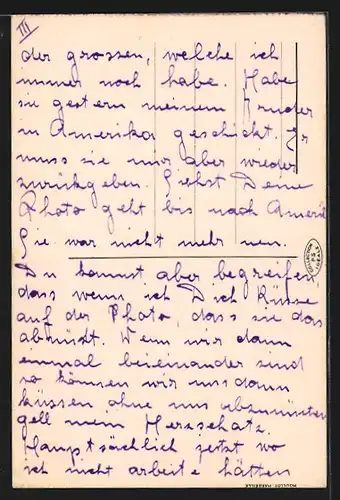 III
der grossen, welche ich
immer noch habe. Habe
sie gestern meinem Bruder
in Amerika geschickt. Er
muss sie mir aber wieder
zurückgeben. Siehst Deine
Photo geht bis nach Amerik
Sie war nicht mehr neu.
Du kannst aber begreifen
dass wenn ich Dich küsse
auf der Photo, dass sie das
abnützt. Wenn wir dann
einmal beieinander sind
so können wir uns dann
küssen ohne uns abzunützen
gell mein Herzschatz.
Hauptsächlich jetzt wo
ich nicht arbeite hätten